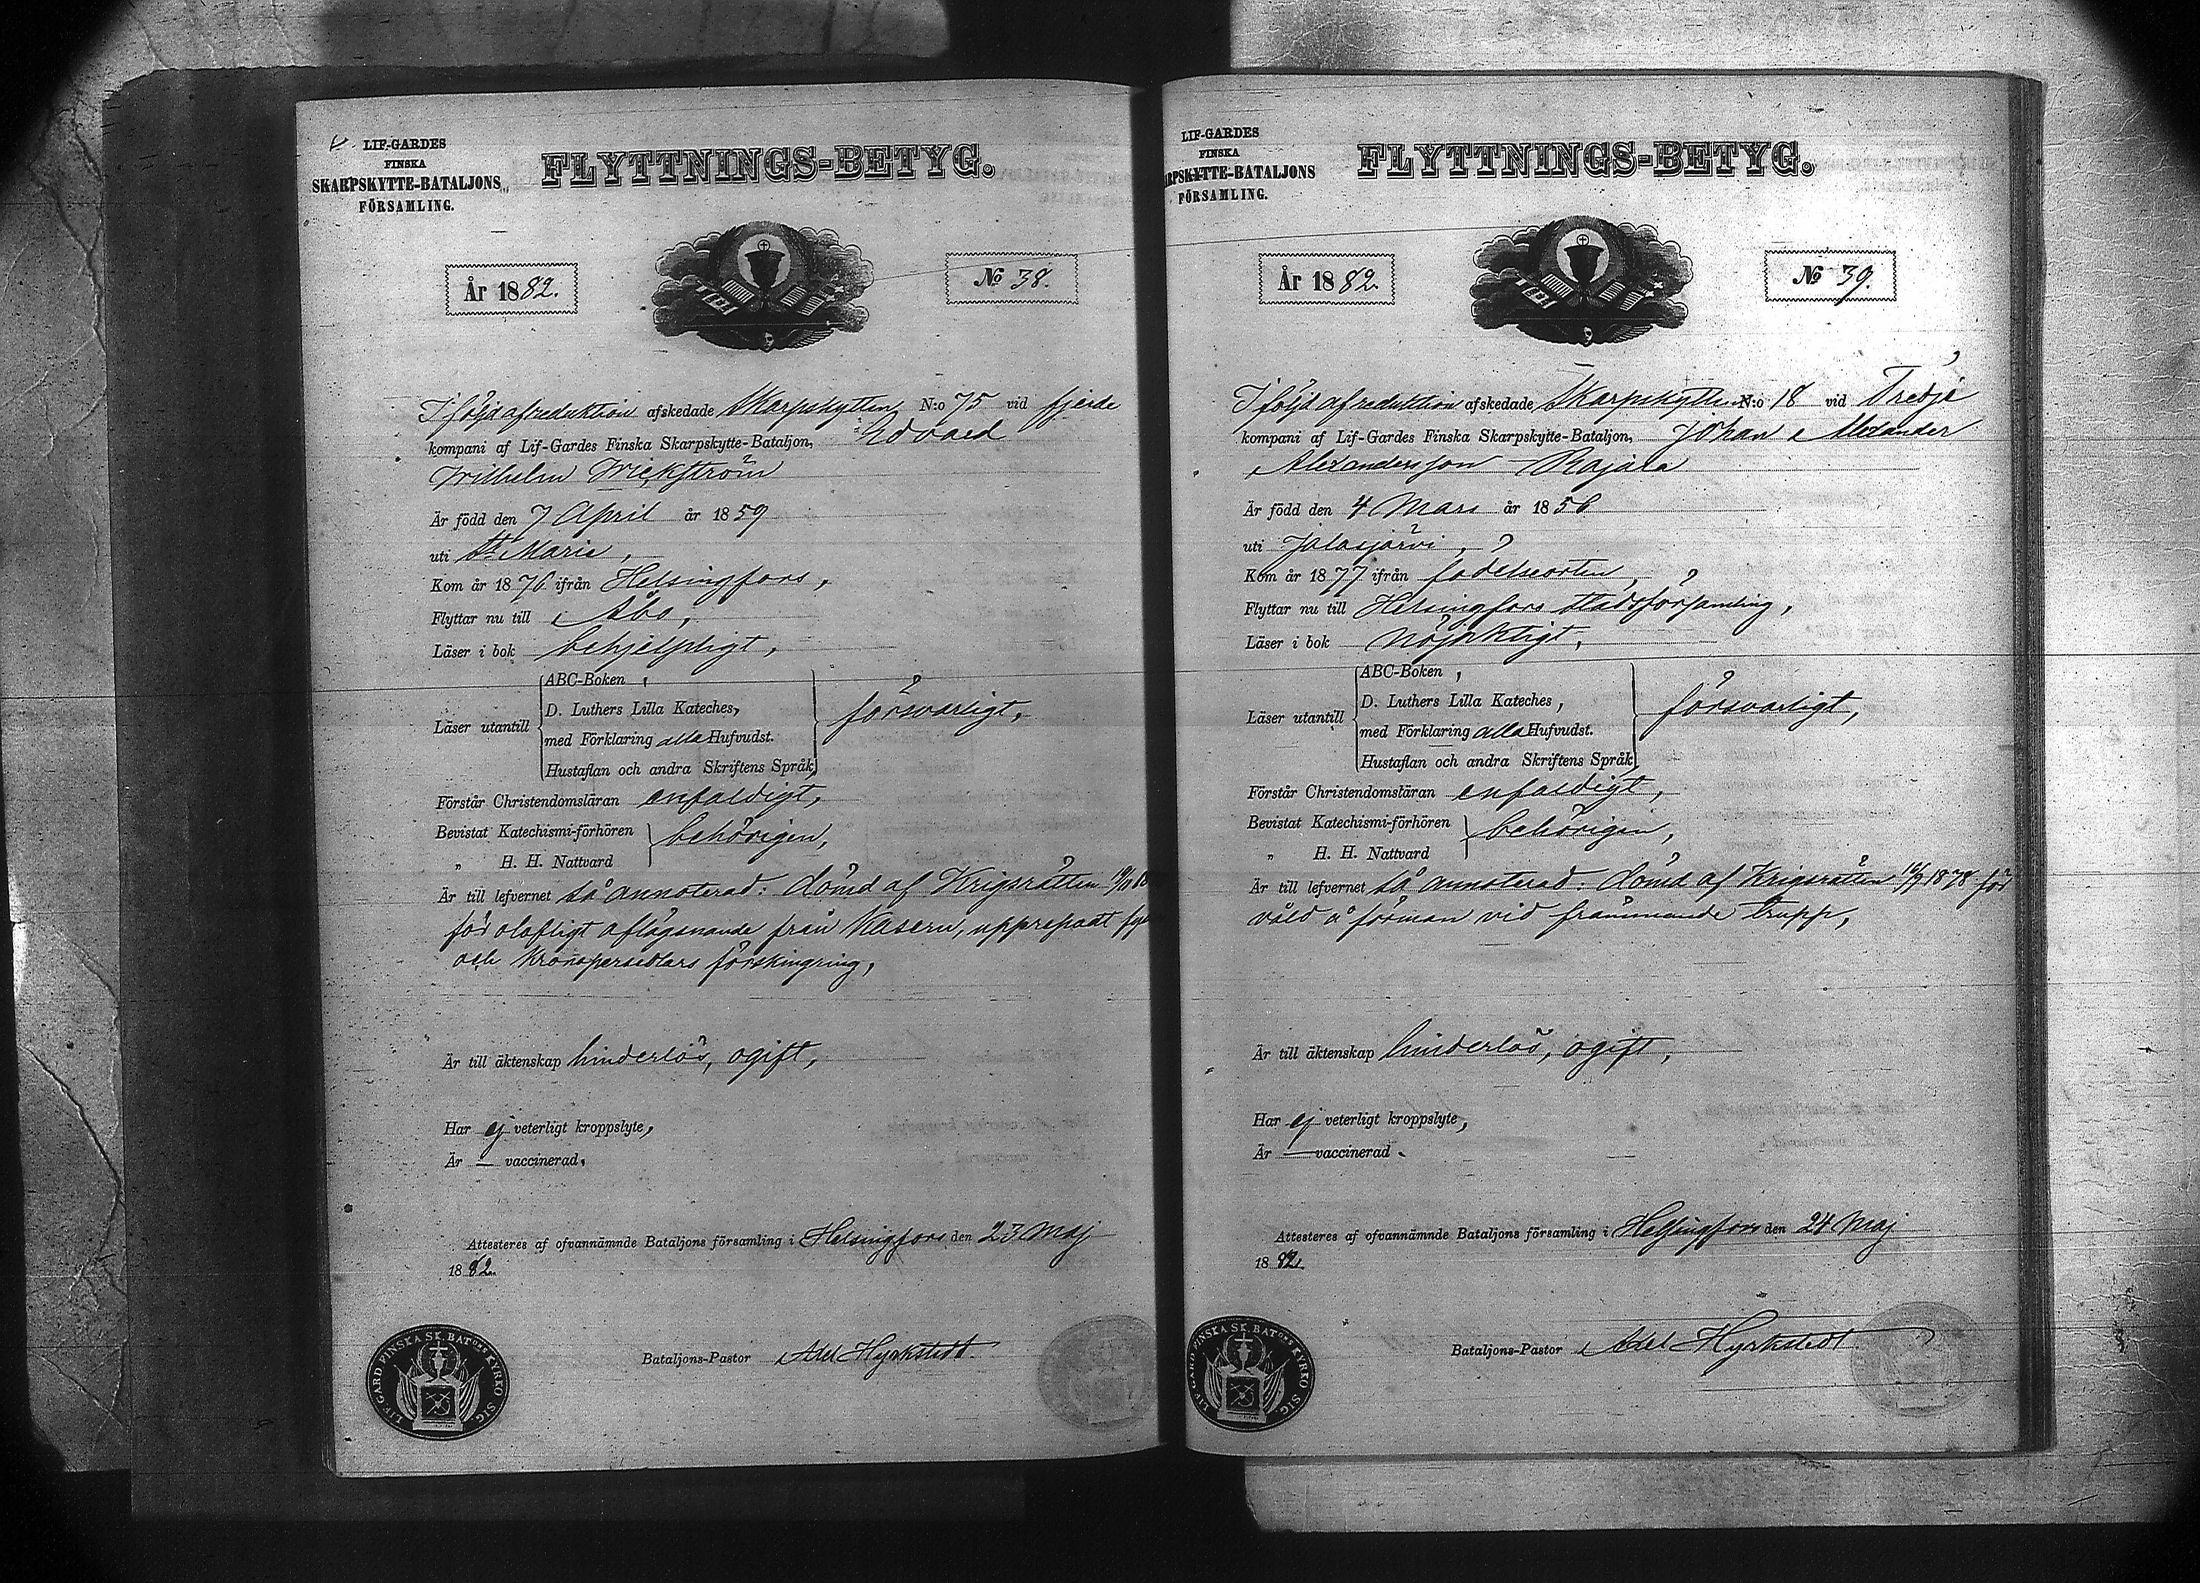 LIF-GARDES
FINSKA
SKARPSKYTTE-BATALJONS
FÖRSAMLING.
FLYTTNINGS-BETYG.
År 1882.
No 38.
I följd af reduktion afskedade Skarpskytten N:o 75 vid fjerde
kompani af Lif-Gardes Finska Skarpskytte-Bataljon, Edvard
Wilhelm Wickström
Är född den 7 April år 1859
uti St Marie,
Kom år 1876 ifrån Helsingfors,
Flyttar nu till Åbo,
Läser i bok behjelpligt,
Läser utantill
ABC-Boken,
D. Luthers Lilla Kateches,
med Förklaring alla Hufvudst.
Hustaflan och andra Skriftens Språk,
försvarligt,
Förstår Christendomsläran enfaldigt,
Bevistat Katechismi-förhören
„ H. H. Nattvard
behörigen,
Är till lefvernet så annoterad: dömd af Krigsrätten
för olofligt aflägsnande från Kasern, upprepadt
och Kronopersedlars förskingring,
Är till äktenskap hinderlös, ogift,
Har ej veterligt kroppslyte,
Är — vaccinerad.
Attesteres af ofvannämnde Bataljons församling i Helsingfors den 23 Maj
1882.
Bataljons-Pastor Adel Hyrkstedt.
LIF-GARD FINSKA SK. BATONS KYRKO SIG.
LIF-GARDES
FINSKA
RPSKYTTE-BATALJONS
FÖRSAMLING.
FLYTTNINGS-BETYG.
År 1882.
No 39.
I följd af reduktion afskedade Skarpskytten N:o 18 vid Tredje
kompani af Lif-Gardes Finska Skarpskytte-Bataljon, Johan Alexander
Alexandersson Rajala
Är född den 4 Mars år 1856
uti Jalasjärvi,
Kom år 1877 ifrån födelseorten,
Flyttar nu till Helsingfors Stadsförsamling,
Läser i bok nöjaktigt,
Läser utantill
ABC-Boken,
D. Luthers Lilla Kateches,
med Förklaring alla Hufvudst.
Hustaflan och andra Skriftens Språk,
försvarligt,
Förstår Christendomsläran enfaldigt,
Bevistat Katechismi-förhören
„ H. H. Nattvard
behörigen,
Är till lefvernet så annoterad: dömd af Krigsrätten 1878 för
våld å förman vid främmande trupp,
Är till äktenskap hinderlös, ogift,
Har ej veterligt kroppslyte,
Är — vaccinerad.
Attesteres af ofvannämnde Bataljons församling i Helsingfors den 24 Maj
1882.
Bataljons-Pastor Adel Hyrkstedt.
LIF-GARD FINSKA SK. BATONS KYRKO SIG.